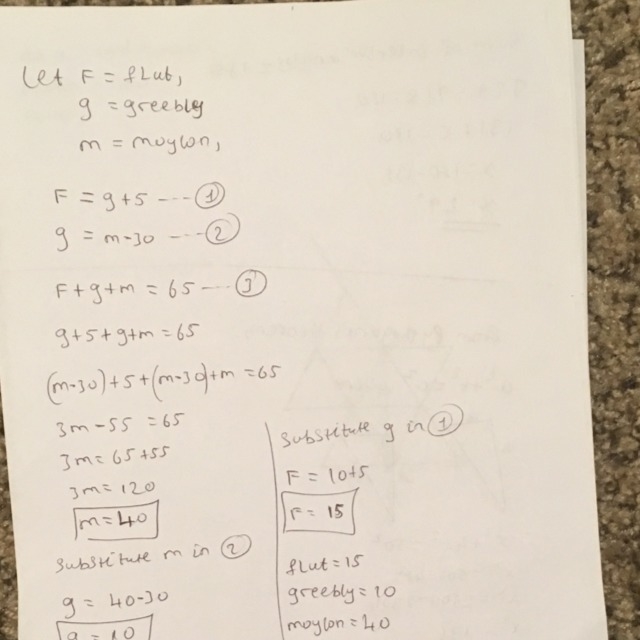 Let F = flut,
g = greebly
m = moylon,
F = g+5 ---- ①
g = m-30 ---- ②
F+g+m = 65 ---- ③
g+5+g+m = 65
(m-30)+5+(m-30)+m = 65
3m-55 = 65
3m = 65+55
3m = 120
m = 40
substitute m in ②
g = 40-30
g = 10
substitute g in ①
F = 10+5
F = 15
flut = 15
greebly = 10
moylon = 40